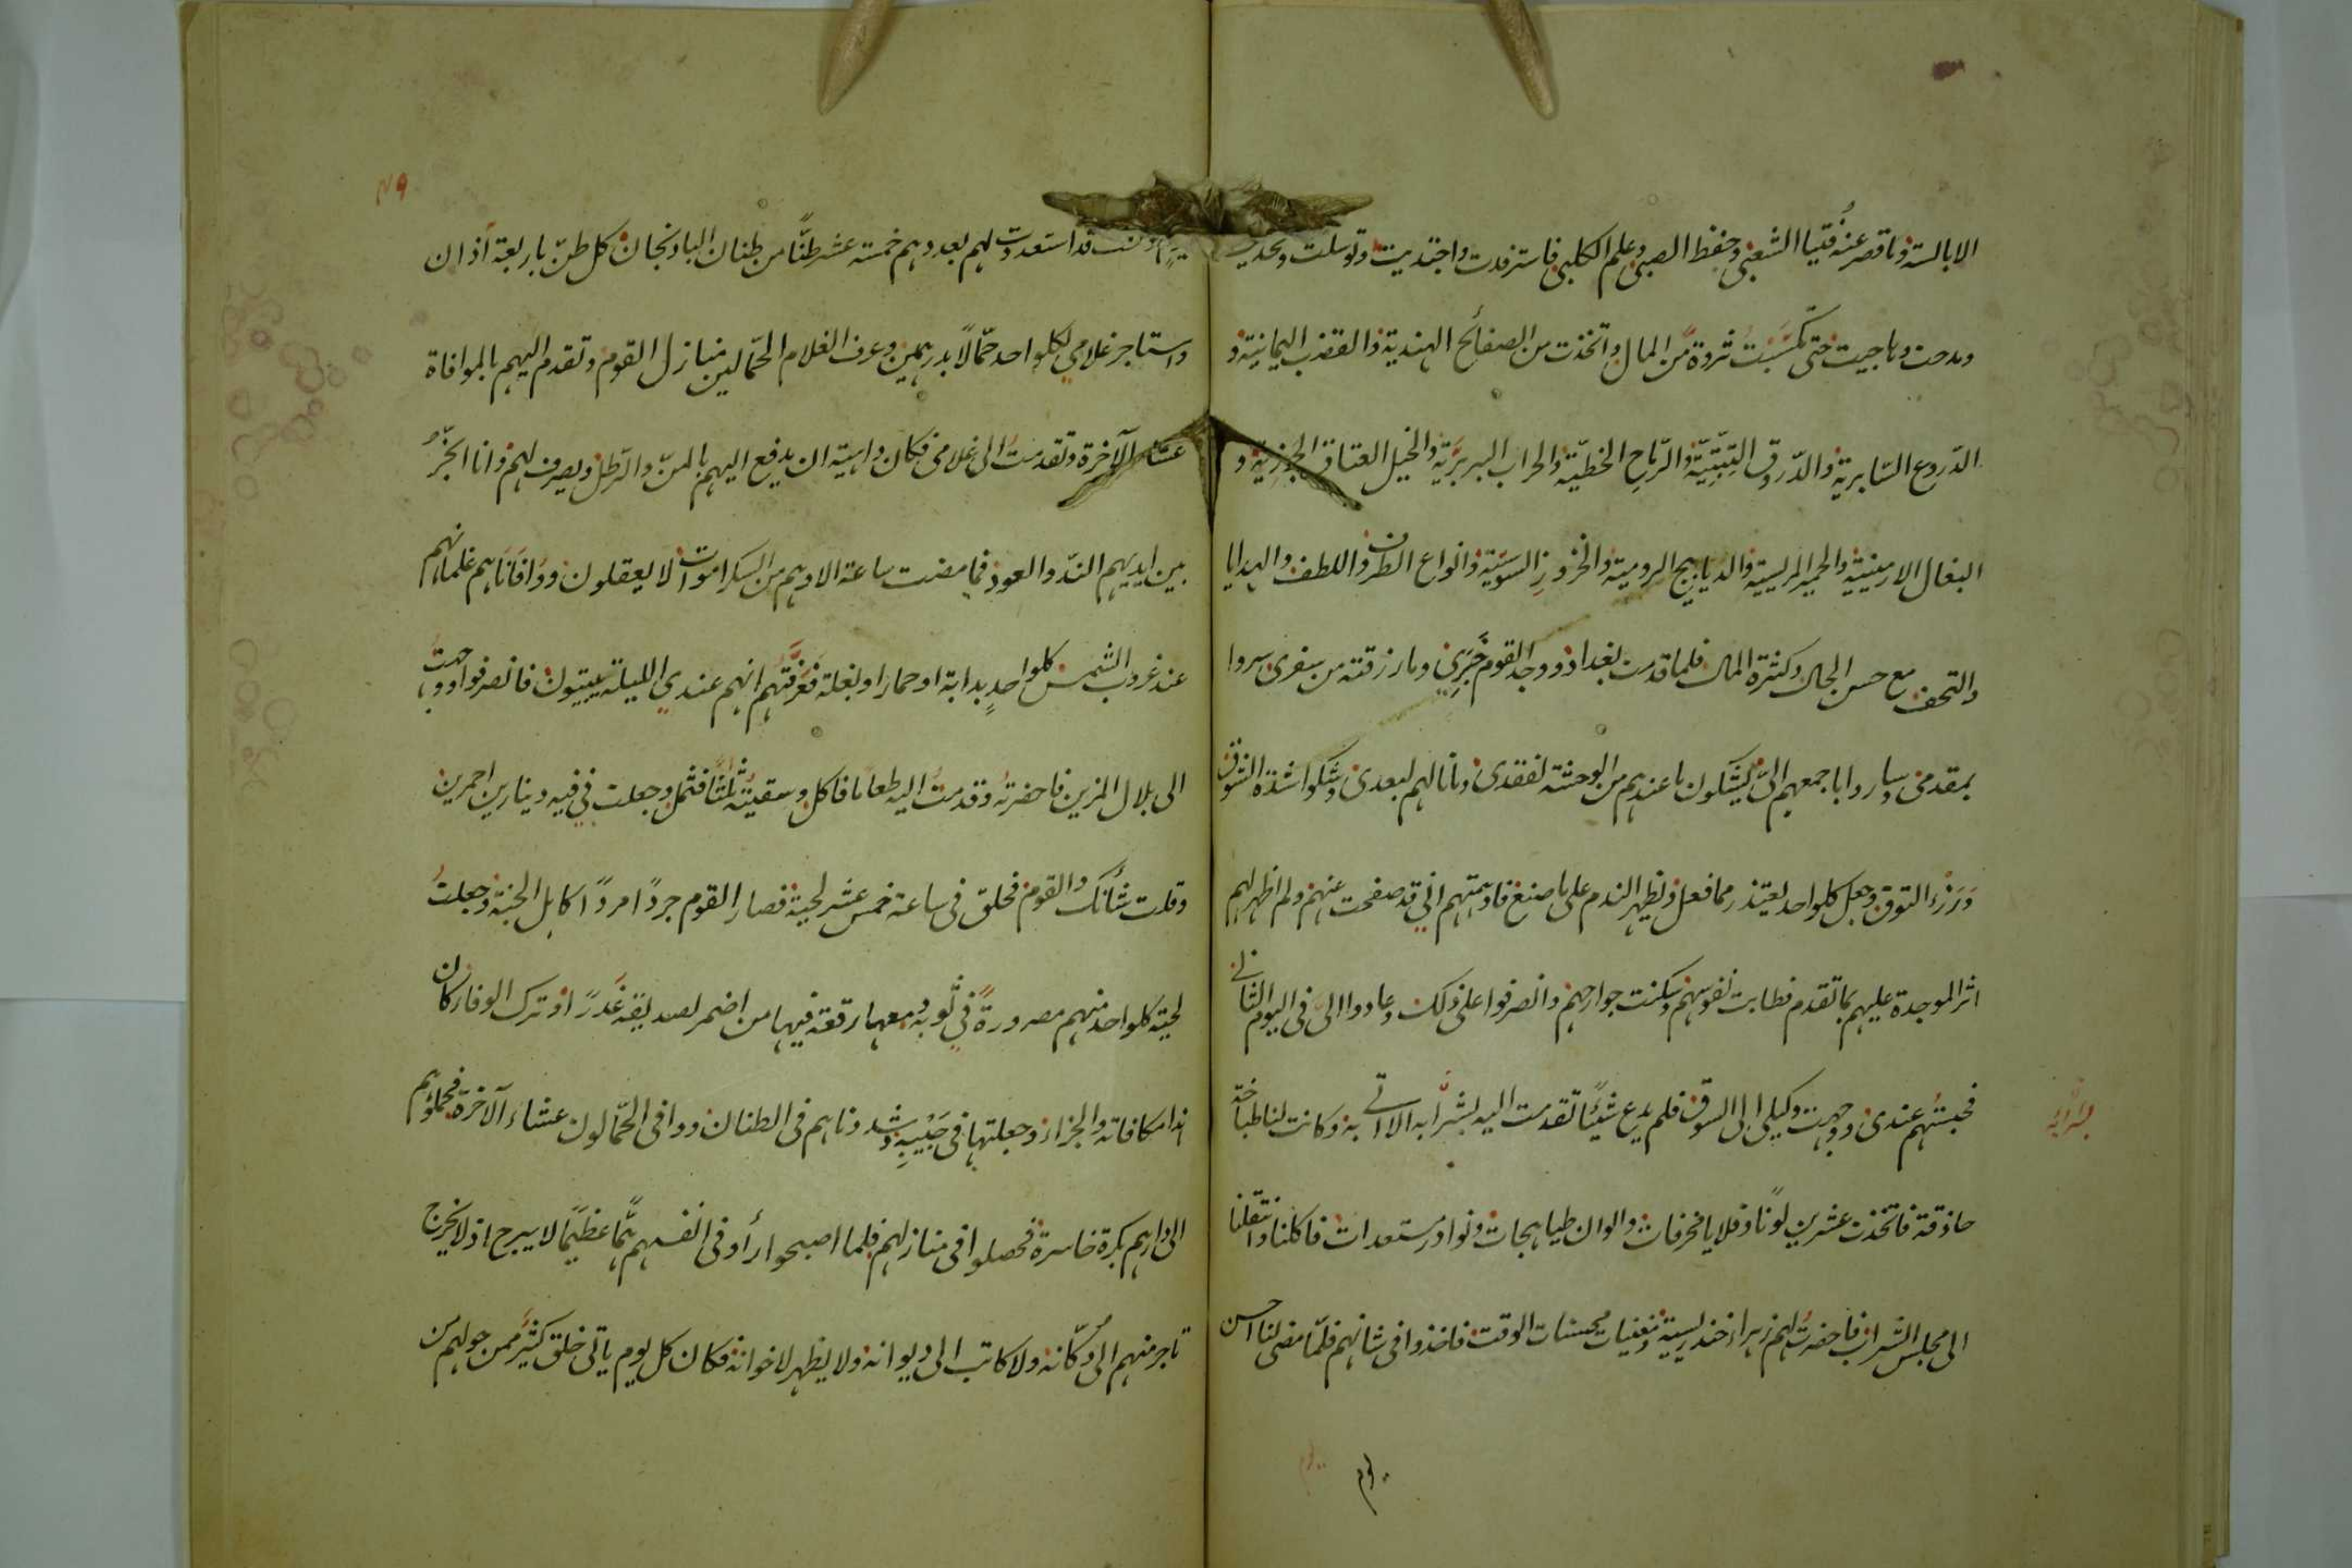 الابالسة وما قصر عنه فُتيا الشعبي وحفظ الضبي وعلم الكلبي فاسترفدت واجتديت وتوسلت وتكديت
ومدحت وهاجيت حتى كسبَتُ ثروةً من المال واتخذت من الصفائح الهندية والقضب اليمانية و
الدّروع السّابرية والدّرق التِّبِّتِيَّة والرّماح الخطيّة والحراب البربرَيّة والخيل العتاق الجزرية و
البغال الارمينية والحمير المريسية والديابيج الرومية والخزوزِ السوسَيّة وانواع الطرف واللطف والهدايا
والتحف مع حسن الحال وكثرة المال فلما قدمت بغداد ووجد القوم خَبَرِي وما رزقته من سفرى سروا
بمقدمى وساروا باجمعهم الىّ يشكون ما عندهم من الوحشة لفقدى وما نالهم لبعدى وشكوا شدة الشوق
ورزء التوق وجعل كلواحد يعتذر مما فعل ويظهر الندم على ما صنع فاوهمتهم انّي قد صفحت عنهم ولم اظهر لهم
اثر الموجدة عليهم بما تقدم فطابت نفوسهم وسكنت جوارحهم وانصرفوا على ذلك وعادوا الىّ فى اليوم الثانى
فحبستُهم عندى ووجهت وكيلى الى السوق فلم يدع شيئًا تقدمت اليه بشرَّابه الا اتى به وكانت لنا طباخة
حاذقة فاتخذت عشرين لونًا وقلايا محرفات والوان طباهجات ونوادر مستعدات فاكلنا وانتقلنا
الى مجلس الشراب فأحضرتُ لهم زهراء خندريسية ومغنيات محسنات الوقت فاخذوا فى شانهم فلمّا مضى لنا احسن
بشرّابه
وكنت قد استعددت لهم بعددهم خمسة عشر طنًّا من طنان الباذنجان كل طنّ باربعة آذان
واستاجر غلامي لكلواحد حمّالًا بدرهمين وعرف الغلام الحمّالين منازل القوم وتقدم اليهم بالموافاة
عشاء الآخرة وتقدمت الى غلامى وكان داهية ان يدفع اليهم بالمنّ والرّطل ويصرف لهم وانا ابخّرُ
بين ايديهم الندّ والعود فما مضت ساعة الا وهم من السكر اموات لا يعقلون ووافَانَاهم غلمانهم
عند غروب الشمس كلواحدٍ بدابة او حمار او بغلة فعَرَّفتُهم انهم عندي الليلة يبيتون فانصرفوا ووجهتُ
الى بلال المزين فاحضرتهُ وقدمتُ اليه طعامًا فاكل وسقيتُهُ ثُلُثًا فثمل وجعلت في فيه دينارين احمرين
وقلت شأنك والقوم فحلق فى ساعة خمس عشر لحية فصار القوم جردًا مردًا كاهل الجنة وجعلتُ
لحية كلواحد منهم مصرورةً في ثوبه ومعها رقعة فيها من اضمر لصديقه غَدرًا وترك الوفا كان
هذا مكافاته والجزاء وجعلتها فى جَيْبِهِ وشددناهم فى الطنان ووافى الحمّالون عشاء الآخرة فحملوهم
الى دارهم بكرة خاسرة فحصلوا فى منازلهم فلما اصبحوا رأوا فى انفسهم همًّا عظيمًا لا يبرح اذ لا يخرج
تاجر منهم الى دكّانه ولا كاتب الى ديوانه ولا يظهر لاخوانه فكان كل يوم ياتى خلق كثير ممن حولهم من